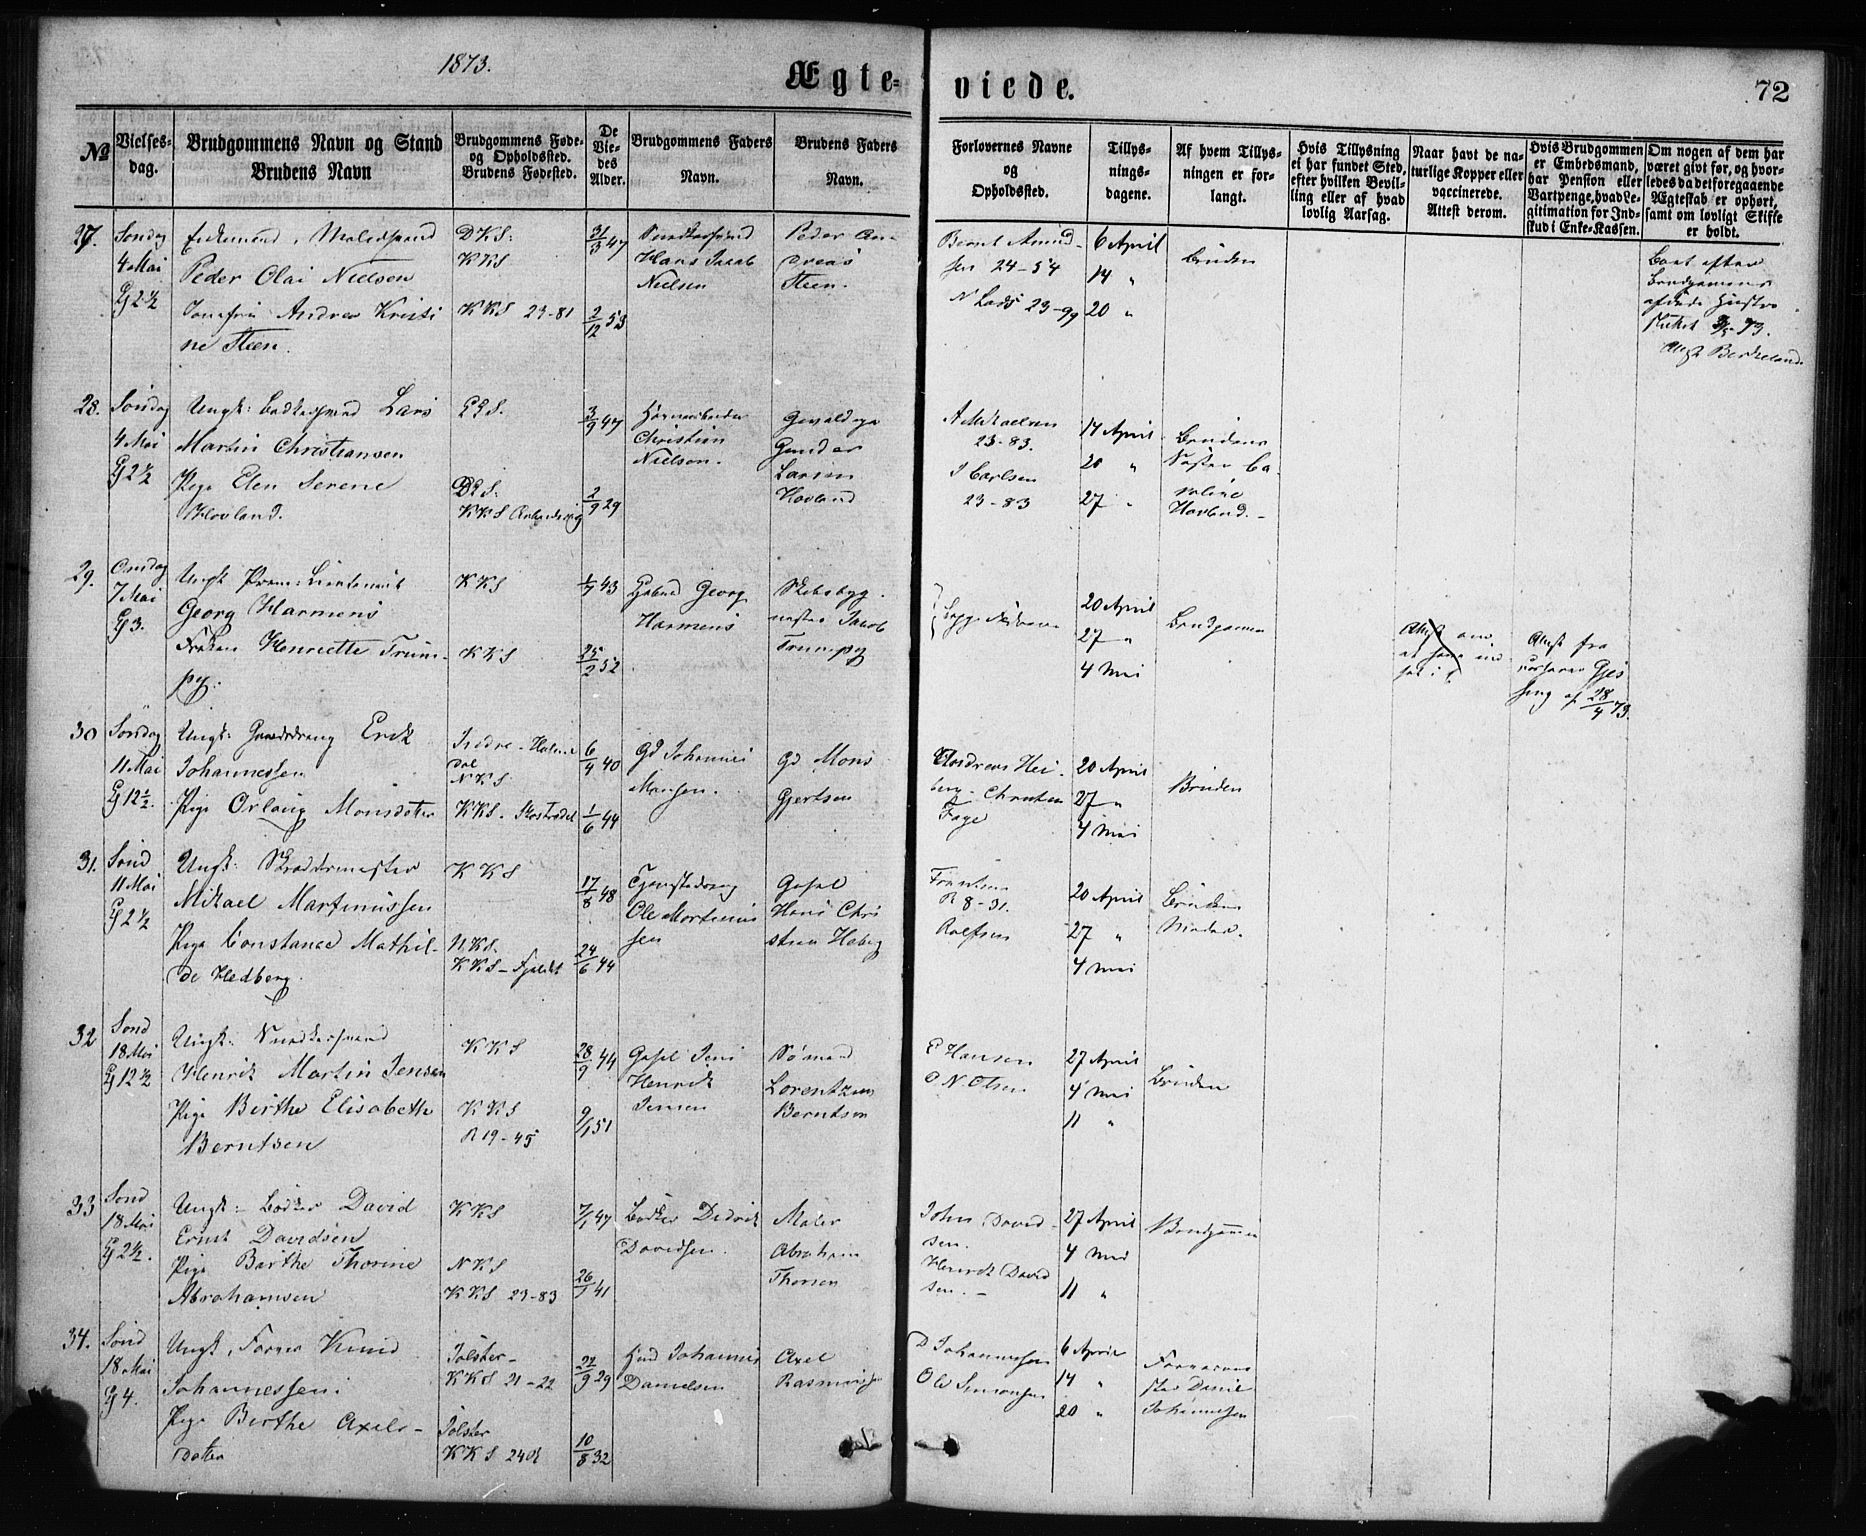 1873.
Ægte-
viede.
72
No
Vielses-
dag.
Brudgommens Navn og Stand
Brudens Navn
Brudgommens Føde-
og Opholdssted.
Brudens Fødested.
De
Vie-
des
Alder.
Brudgommens Faders
Navn.
Brudens Faders
Navn.
Forlovernes Navne
og
Opholdssted.
Tillys-
nings-
dagene.
Af hvem Tillys-
ningen er for-
langt.
Hvis Tillysning
ei har fundet Sted,
efter hvilken Bevil-
ling eller af hvad
lovlig Aarsag.
Naar havt de na-
turlige Kopper eller
vaccinerede.
Attest derom.
Hvis Brudgommen
er Embedsmand,
har Pension eller
Vartpenge, hvad Le-
gitimation for Ind-
skud i Enke-Kassen.
Om nogen af dem har
været givt før, og hvor-
ledes da det foregaaende
Ægteskab er ophørt,
samt om lovligt Skifte
er holdt.
27.
Søndag
4 Mai
Kl 2½
Enkemand,
Peder Olai Nielsen
Jomfru Andrea Kristi
ne Steen.
DKS:
KKS
KKS 23-81
31/3 47
2/12 53
Snedkersvend
Hans Jacob
Nielsen
Peder An-
dreas
Steen.
Bernt Amund-
sen 24-54
N Lads 23-99
6 April
14 "
20 "
Bruden
Boet efter
Brudgomens
afdøde Hustru
Attest Berkeland
28.
Søndag
4 Mai
Kl 2½
Ungk: Lars
Martin Christiansen
Pige Elen Serene
Hovland.
DKS:
KKS
3/9 47
2/9 29
Christian
Nielsen.
Gunder
Larsen
Hovland
A Mikaelsen
23-83.
J Carlsen
23-83
14 April
20 "
27 "
Brudens
Søster Ca-
roline
Hovland.
29.
Onsdag
7 Mai
Kl 3.
Ungk Prem: Lieutenant
Georg Harmens
Frøken Henriette Trum-
py.
KKS
KKS
1/7 43
25/2 52
Georg
Harmens
Skibsbyg-
mester Jacob
Trumpy
20 April
27 "
4 Mai
Brudgommen
Attest fra
28/4 73.
30
Søndag
11 Mai
Kl 12½
Ungk: Gaardsdreng Erik
Johannessen
Pige Orlaug Monsdater
Indre-Holme
dal
NKS
KKS.
6/4 40
1/6 44
Gd Johannes
Monsen.
Gd Mons
Gjertsen
Andreas Hei-
berg Christen
Fage
20 April
27 "
4 Mai
Bruden
31.
Sønd
11 Mai
Kl 2½
Ungk: Skræddermester
Mikael Martinussen
Pige Constance Mathil-
de Hedberg.
KKS
NKS.
KKS
17/8 48
24/6 44
Ole Martinus
sen
Gasel
Hans Chri
stian
R 8-31.
Rolfsen
20 April
27 "
4 Mai
Brudens
Moder.
32
Sønd
18 Mai
Kl 12½
Ungk: Snedkersvend
Henrik Martin Jensen
Pige Birthe Elisabeth
Berntsen
KKS
KKS
R 19-45
28/9 44
9/1 51
Gasel Jens
Henrik
Jensen
Sømand
Lorentzen
Berntsen
E Hansen
O N Olsen
27 April
4 Mai
11 "
Bruden
33
Sønd
18 Mai
Kl 2½.
Ungk: Bødker David
Ernst Davidsen
Pige Barthe Thorine
Abrahamsen
KKS
NKS
KKS 23-83
7/1 47
26/7 41
Bødker Didrik
Davidsen.
Maler
Abraham
Thorsen
John David-
sen.
Henrik David
sen.
27 April
4 Mai
11 "
Brudgommen
34.
Sønd
18 Mai
Kl 4.
Ungk, Former Knud
Johannessen
Pige Birthe Axels-
Datter
Jølster-
KKS 21-22
Jølster
KKS
22/9 29
10/8 32
Johannes
Danielsen
Axel
Rasmussen
D Johannesen
Ole Simonsen
6 April
14 "
20 "
Daniel
Johannesen